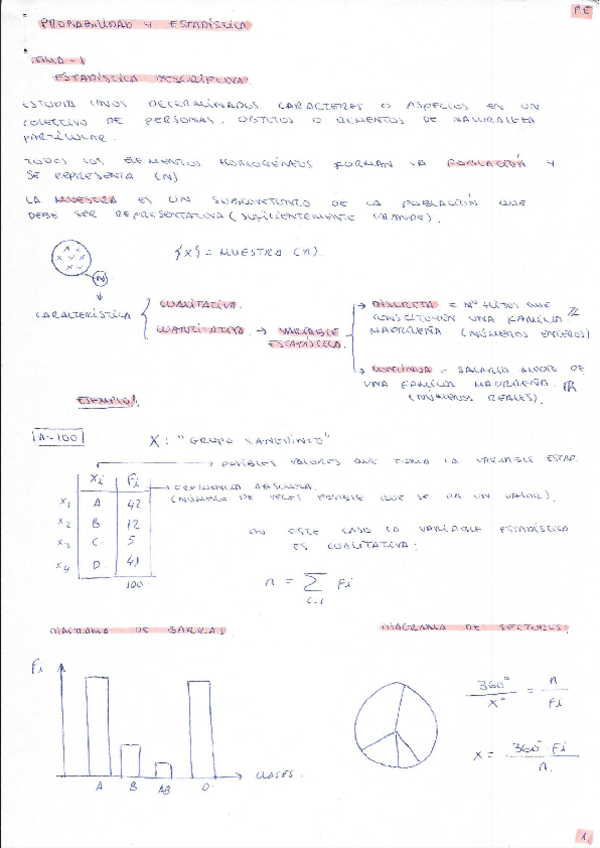 P.E
PROBABILIDAD Y ESTADÍSTICA
TEMA-1
ESTADÍSTICA DESCRIPTIVA
ESTUDIA UNOS DETERMINADOS CARACTERES O ASPECTOS EN UN
COLECTIVO DE PERSONAS, OBJETOS O ELEMENTOS DE NATURALEZA
PARTICULAR.
TODOS LOS ELEMENTOS HOMOGÉNEOS FORMAN LA POBLACIÓN Y
SE REPRESENTA (N)
LA MUESTRA ES UN SUBCONJUNTO DE LA POBLACIÓN QUE
DEBE SER REPRESENTATIVA (SUFICIENTEMENTE GRANDE).
{X} = MUESTRA (n).
CARACTERÍSTICA
CUALITATIVA.
CUANTITATIVA → VARIABLE
ESTADÍSTICA
DISCRETA = Nº HIJOS QUE
CONSTITUYEN UNA FAMILIA ℤ
MADRILEÑA (NÚMEROS ENTEROS)
CONTINUA - SALARIO MEDIO DE
UNA FAMILIA MADRILEÑA. ℝ
(NÚMEROS REALES).
EJEMPLO!
A-100
X: "GRUPO SANGUÍNEO"
POSIBLES VALORES QUE TOMA LA VARIABLE ESTAD.
Xi Fi
FRECUENCIA ABSOLUTA.
(NÚMERO DE VECES POSIBLE QUE SE DA UN VALOR).
X1 A 42
X2 B 12
X3 C 5
X4 D 41
100
EN ESTE CASO LA VARIABLE ESTADÍSTICA
ES CUALITATIVA:
n = Σ Fi
i=1
DIAGRAMA DE BARRAS
DIAGRAMA DE SECTORES.
Fi
A B AB O
CLASES.
360° / X° = n / Fi
X = 360° Fi / n
1.